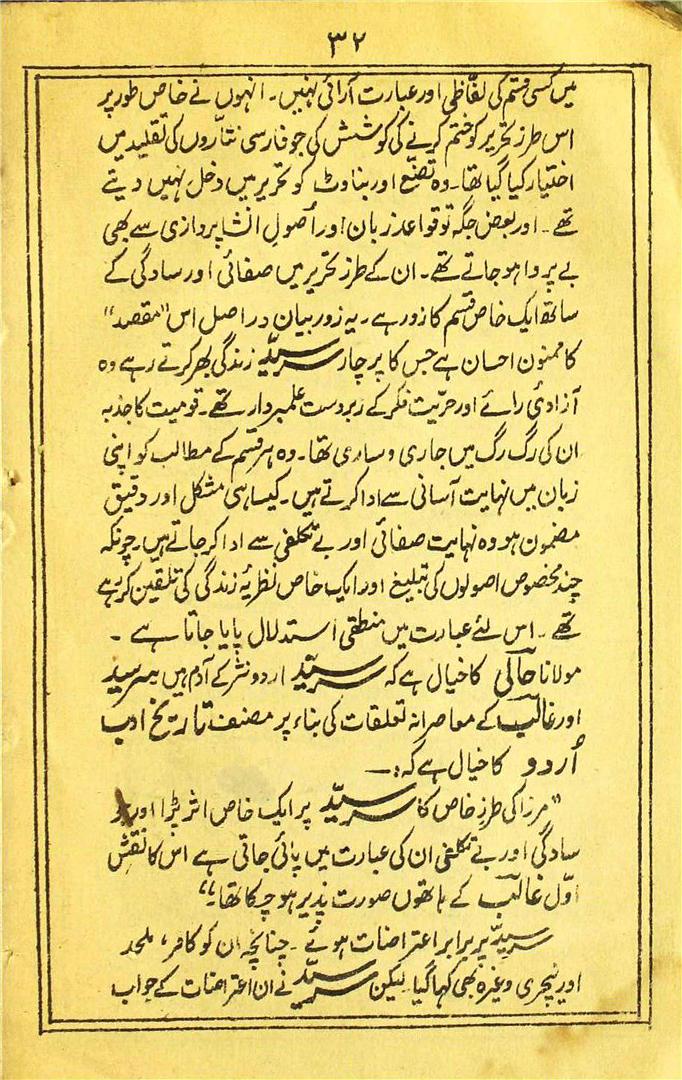 ۳۲
میں کسی قسم کی لفّاظی اور عبارت آرائی نہیں۔ انہوں نے خاص طور پر
اس طرز تحریر کو ختم کرنے کی کوشش کی جو فارسی نثّاروں کی تقلید میں
اختیار کیا گیا تھا۔ وہ تصنّع اور بناوٹ کو تحریر میں دخل نہیں دیتے
تھے۔ اور بعض جگہ تو قواعد زبان اور اُصول انشا پردازی سے بھی
بے پروا ہو جاتے تھے۔ ان کے طرز تحریر میں صفائی اور سادگی کے
ساتھ ایک خاص قسم کا زور ہے۔ یہ زور بیان در اصل اس "مقصد"
کا ممنون احسان ہے جس کا پرچار سرسیّد زندگی بھر کرتے رہے وہ
آزادیٔ رائے اور حرّیت فکر کے زبردست علمبردار تھے۔ قومیت کا جذبہ
ان کی رگ رگ میں جاری و ساری تھا۔ وہ ہر قسم کے مطالب کو اپنی
زبان میں نہایت آسانی سے ادا کرتے ہیں۔ کیسا ہی مشکل اور دقیق
مضمون ہو وہ نہایت صفائی اور بے تکلفی سے ادا کر جاتے ہیں۔ چونکہ
چند مخصوص اصولوں کی تبلیغ اور ایک خاص نظریۂ زندگی کی تلقین کر رہے
تھے۔ اس لئے عبارت میں منطقی استدلال پایا جاتا ہے۔
مولانا حالی کا خیال ہے کہ سرسیّد اردو نثر کے آدم ہیں۔ سرسید
اور غالب کے معاصرانہ تعلقات کی بناء پر مصنف تاریخ ادب
اُردو کا خیال ہے کہ:۔
"مرزا کی طرز خاص کا سرسیّد پر ایک خاص اثر پڑا اور جو
سادگی اور بے تکلفی ان کی عبارت میں پائی جاتی ہے اس کا نقش
اوّل غالب کے ہاتھوں صورت پذیر ہو چکا تھا۔"
سرسیّد پر برابر اعتراضات ہوئے۔ چنانچہ ان کو کافر، ملحد
اور نیچری وغیرہ بھی کہا گیا۔ لیکن سرسیّد نے ان اعتراضات کے جواب